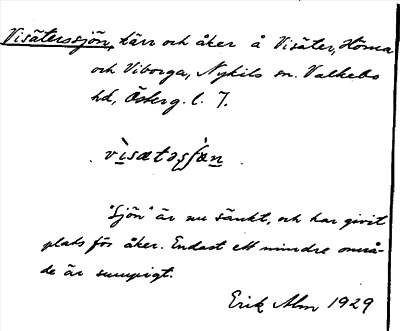 Visäterssjön, kärr och åker å Visäter, Homa
och Viborga, Nykils sn. Valkebo
hd, Österg. l. 7.
"Sjön" är nu sänkt, och har givit
plats för åker. Endast ett mindre områ-
de är sumpigt.
Erik Alm 1929